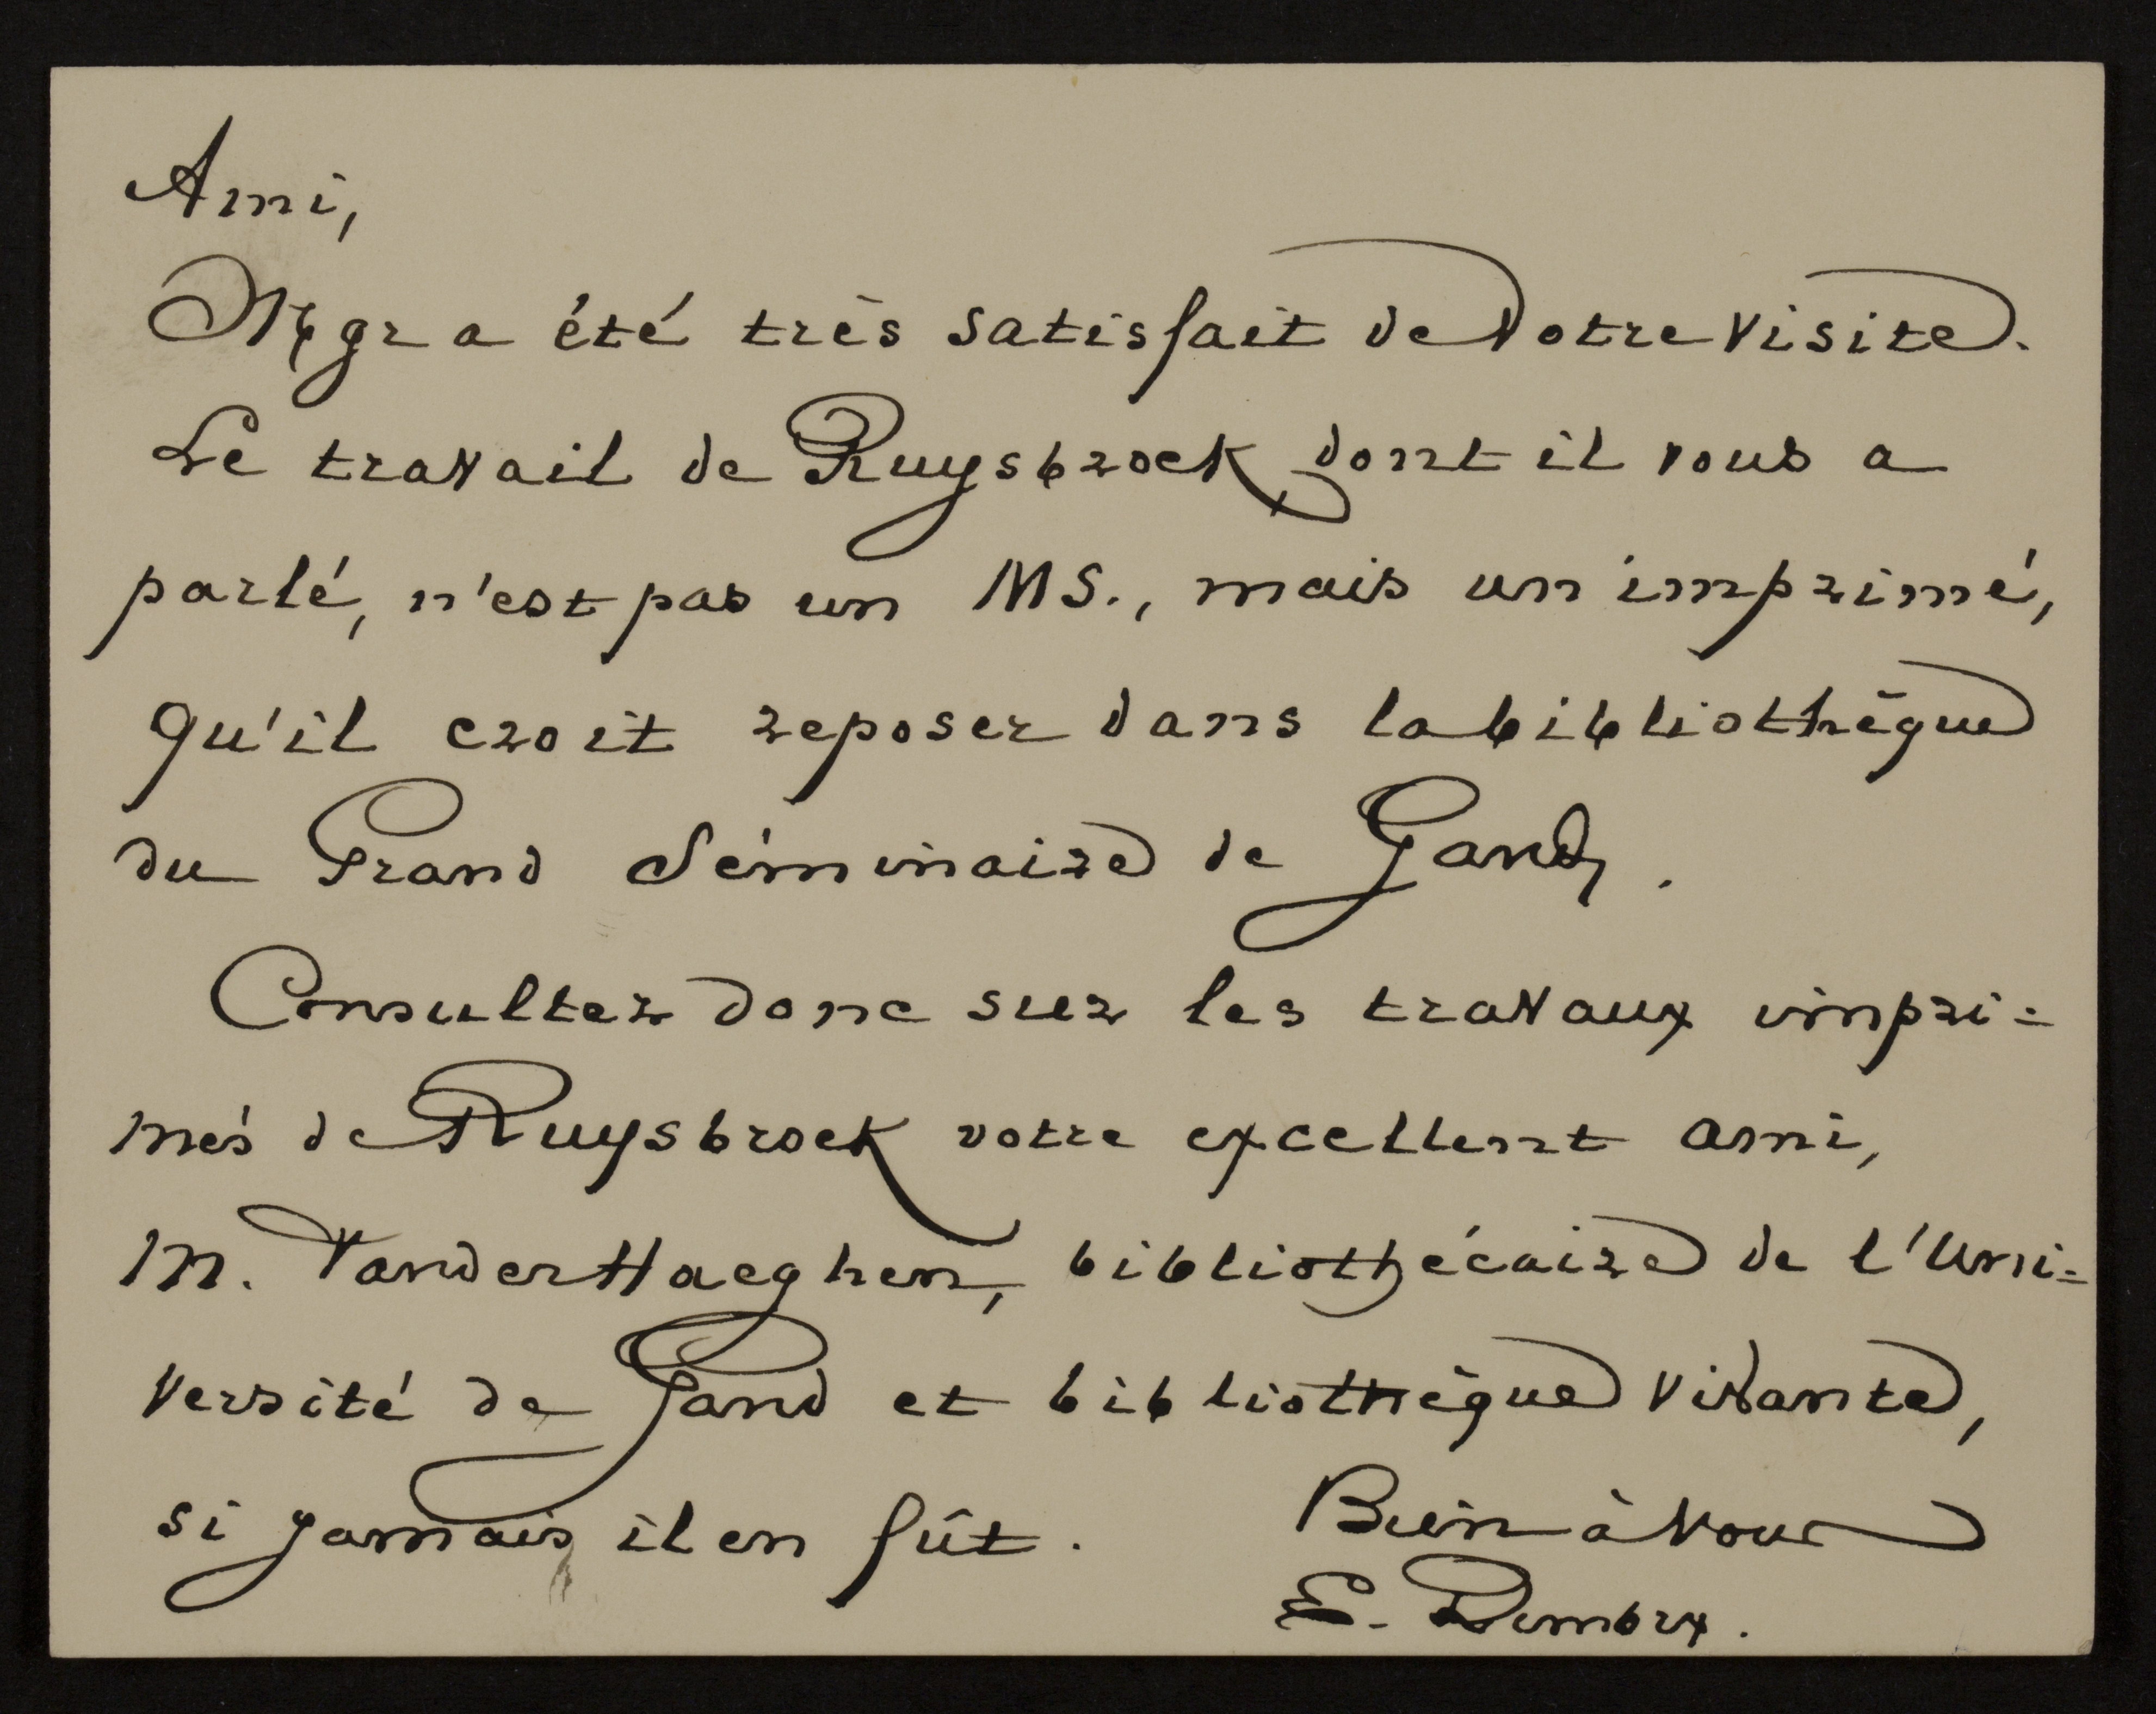 Ami,
Mgr a été très satisfait de votre visite.
Le travail de Ruysbrock dont il vous a
parlé, n'est pas un MS., mais un imprimé,
qu'il croit reposer dans la bibliothèque
du Grand Séminaire de Gand.
Consultez donc sur les travaux impri=
més de Ruysbrock votre excellent ami,
M. VanderHaeghen, bibliothécaire de l'Uni=
versité de Gand et bibliothèque vivante,
si jamais il en fût.
Bien à vous
E.